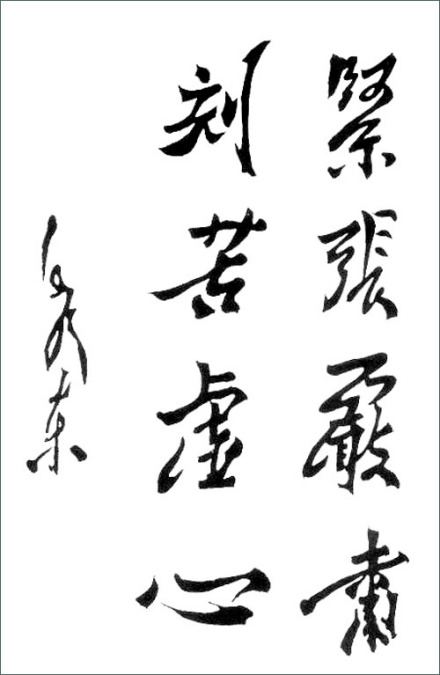 緊張嚴肅
刻苦虛心
毛泽东